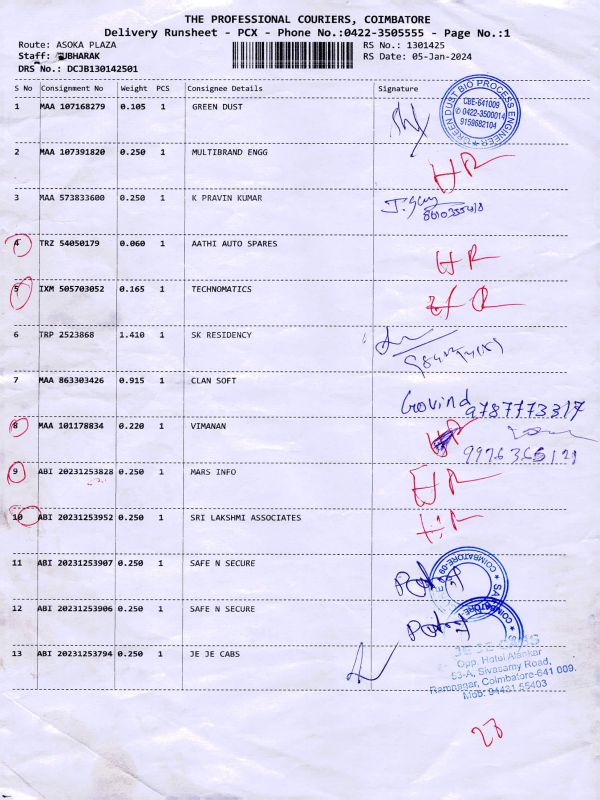 THE PROFESSIONAL COURIERS, COIMBATORE
Delivery Runsheet - PCX - Phone No.:0422-3505555 - Page No.:1
Route: ASOKA PLAZA RS No.: 1301425
Staff: UBHARAK RS Date: 05-Jan-2024
DRS No.: DCJB130142501
S No Consignment No Weight PCS Consignee Details Signature
1 MAA 107168279 0.105 1 GREEN DUST
GREEN DUST BIO PROCESS ENGINEER
CBE-641009
0422-3500014
9159682104
2 MAA 107391820 0.250 1 MULTIBRAND ENGG HR
3 MAA 573833600 0.250 1 K PRAVIN KUMAR
4 TRZ 54050179 0.060 1 AATHI AUTO SPARES HR
5 IXM 505703052 0.165 1 TECHNOMATICS
6 TRP 2523868 1.410 1 SK RESIDENCY
7 MAA 863303426 0.915 1 CLAN SOFT
Govind 9787773317
8 MAA 101178834 0.220 1 VIMANAN
9976365121
9 ABI 20231253828 0.250 1 MARS INFO HR
10 ABI 20231253952 0.250 1 SRI LAKSHMI ASSOCIATES HR
11 ABI 20231253907 0.250 1 SAFE N SECURE
COIMBATORE-09
12 ABI 20231253906 0.250 1 SAFE N SECURE
COIMBATORE
13 ABI 20231253794 0.250 1 JE JE CABS
JE JE CABS
Opp. Hotel Alankar
53-A, Sivasamy Road,
Ramnagar, Coimbatore-641 009.
Mob: 94431 55403